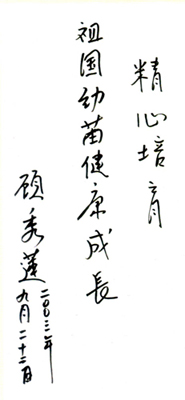 精心培育
祖国幼苗健康成長
顾秀莲
二〇〇三年
九月二十二日